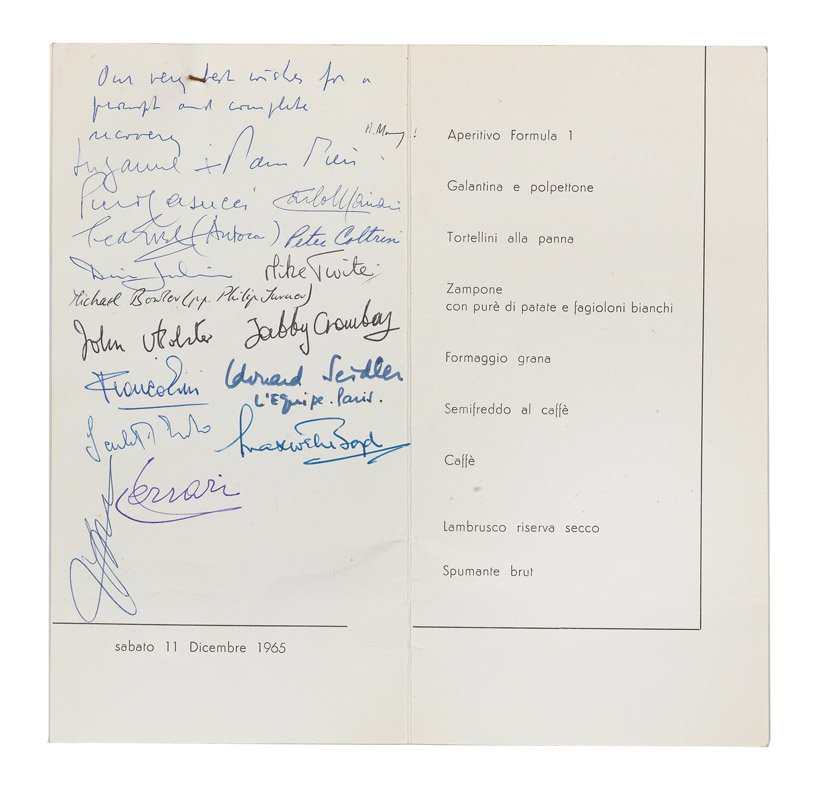 Our very best wishes for a
prompt and complete
recovery
Suzanne +
Piero Casucci Carlo
(Autocar) Peter Coltrin
Mike Twite
Michael Bowler (pp. Philip Turner)
John Jabby Crombac
Francolini Edouard Seidler
L'Equipe. Paris.
Ferrari
sabato 11 Dicembre 1965
Aperitivo Formula 1
Galantina e polpettone
Tortellini alla panna
Zampone
con purè di patate e fagioloni bianchi
Formaggio grana
Semifreddo al caffè
Caffè
Lambrusco riserva secco
Spumante brut